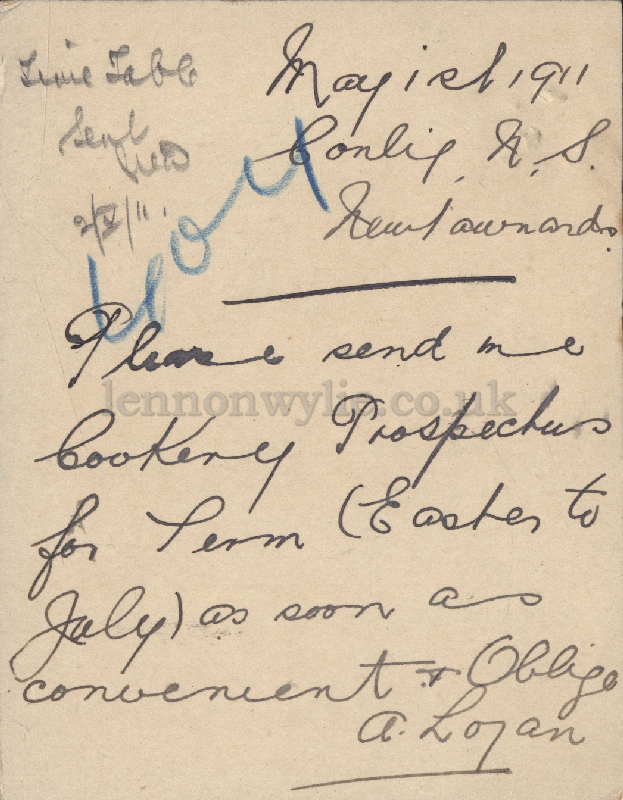 Time Table
Sent
2/V/11.
May 1st 1911
Conlig, N. S.
Newtownards
Please send me
lennonwylie.co.uk
Cookery Prospectus
for Term (Easter to
July) as soon as
convenient & Oblige
A. Logan